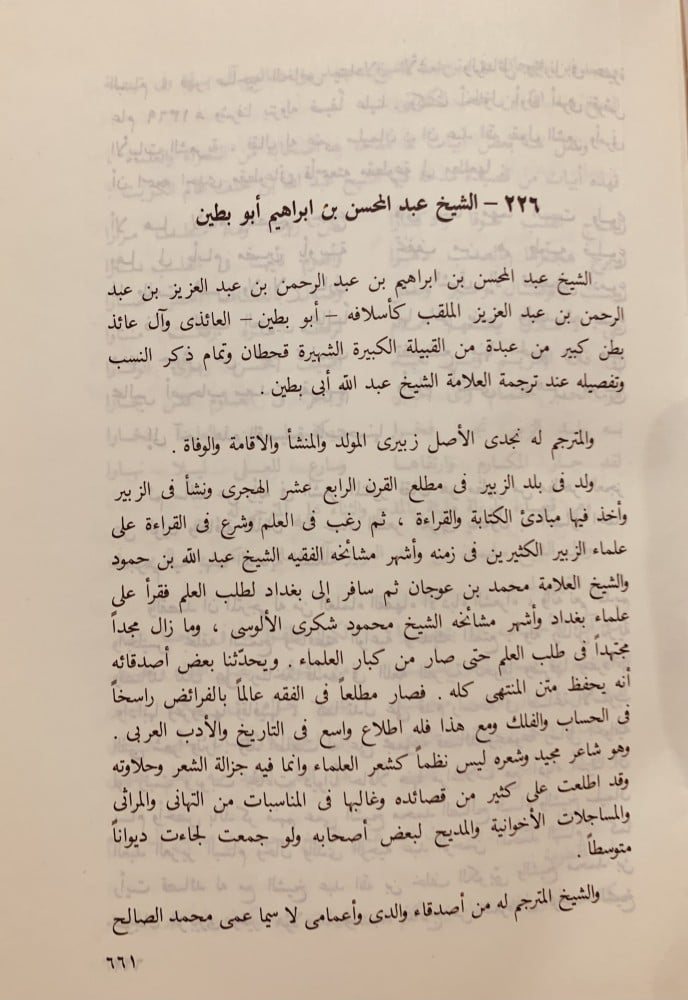 ٢٢٦ – الشيخ عبد المحسن بن ابراهيم أبو بطين
الشيخ عبد المحسن بن ابراهيم بن عبد الرحمن بن عبد العزيز بن عبد
الرحمن بن عبد العزيز الملقب كأسلافه – أبو بطين – العائذى وآل عائذ
بطن كبير من عبدة من القبيلة الكبيرة الشهيرة قحطان وتمام ذكر النسب
وتفصيله عند ترجمة العلامة الشيخ عبد الله أبى بطين .
والمترجم له نجدى الأصل زبيرى المولد والمنشأ والاقامة والوفاة .
ولد فى بلد الزبير فى مطلع القرن الرابع عشر الهجرى ونشأ فى الزبير
وأخذ فيها مبادئ الكتابة والقراءة ، ثم رغب فى العلم وشرع فى القراءة على
علماء الزبير الكثيرين فى زمنه وأشهر مشائخه الفقيه الشيخ عبد الله بن حمود
والشيخ العلامة محمد بن عوجان ثم سافر إلى بغداد لطلب العلم فقرأ على
علماء بغداد وأشهر مشائخه الشيخ محمود شكرى الألوسى ، وما زال مجداً
مجتهداً فى طلب العلم حتى صار من كبار العلماء . ويحدّثنا بعض أصدقائه
أنه يحفظ متن المنتهى كله . فصار مطلعاً فى الفقه عالماً بالفرائض راسخاً
فى الحساب والفلك ومع هذا فله اطلاع واسع فى التاريخ والأدب العربى .
وهو شاعر مجيد وشعره ليس نظماً كشعر العلماء وانما فيه جزالة الشعر وحلاوته
وقد اطلعت على كثير من قصائده وغالبها فى المناسبات من التهانى والمراثى
والمساجلات الأخوانية والمديح لبعض أصحابه ولو جمعت لجاءت ديواناً
متوسطاً .
والشيخ المترجم له من أصدقاء والدى وأعمامى لا سيما عمى محمد الصالح
٦٦١